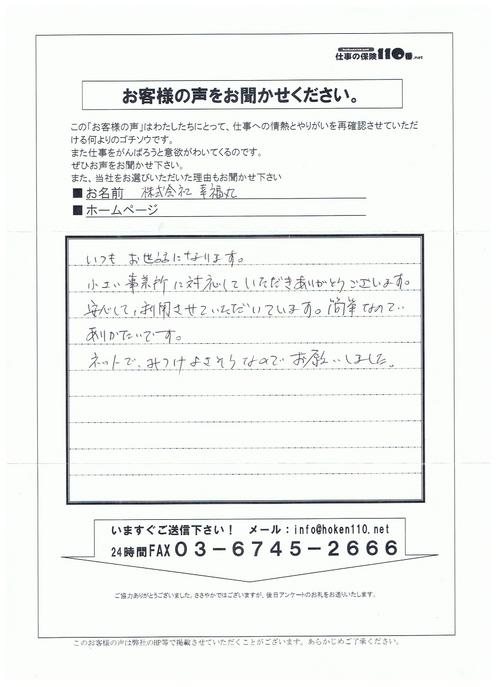 仕事の保険110番.net
お客様の声をお聞かせください。
この「お客様の声」はわたしたちにとって、仕事への情熱とやりがいを再確認させていただ
ける何よりのゴチソウです。
また仕事をがんばろうと意欲がわいてくるのです。
ぜひお声をお聞かせ下さい。
また、当社をお選びいただいた理由もお聞かせ下さい
■お名前 株式会社 幸福丸
■ホームページ
いつも お世話になります。
小さい事業所に対応していただきありがとうございます。
安心して、利用させていただいています。簡単なので
ありがたいです。
ネットで、みつけ よさそうなので お願いしました。
いますぐご送信下さい! メール:info@hoken110.net
24時間FAX03-6745-2666
ご協力ありがとうございました。ささやかではございますが、後日アンケートのお礼をお送りいたします。
このお客様の声は弊社のHP等で掲載させていただくことがございます。あらかじめご了承ください。